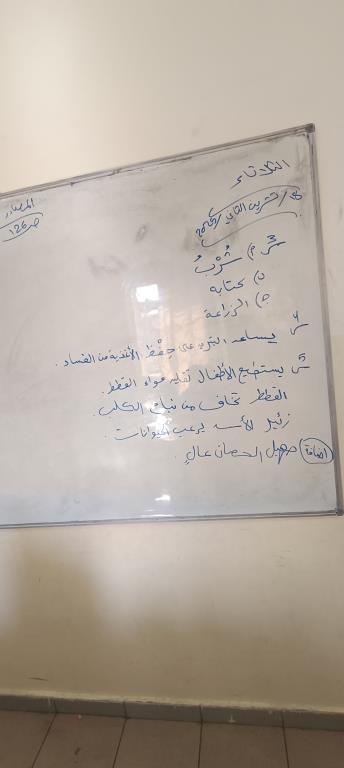 الثلاثاء
تشرين الثاني
المصادر
ص 126
س3 م) شُرْبُ
ن) كتابة
ج) الزراعة
س4 يساعد التبريد على حِفْظ الأغذية من الفساد.
س5 يستطيع الأطفال تقليد مواء القطط.
القطط تخاف من نباح الكلب.
زئير الأسد يرعب الحيوانات.
إضافة) صهيل الحصان عالٍ.